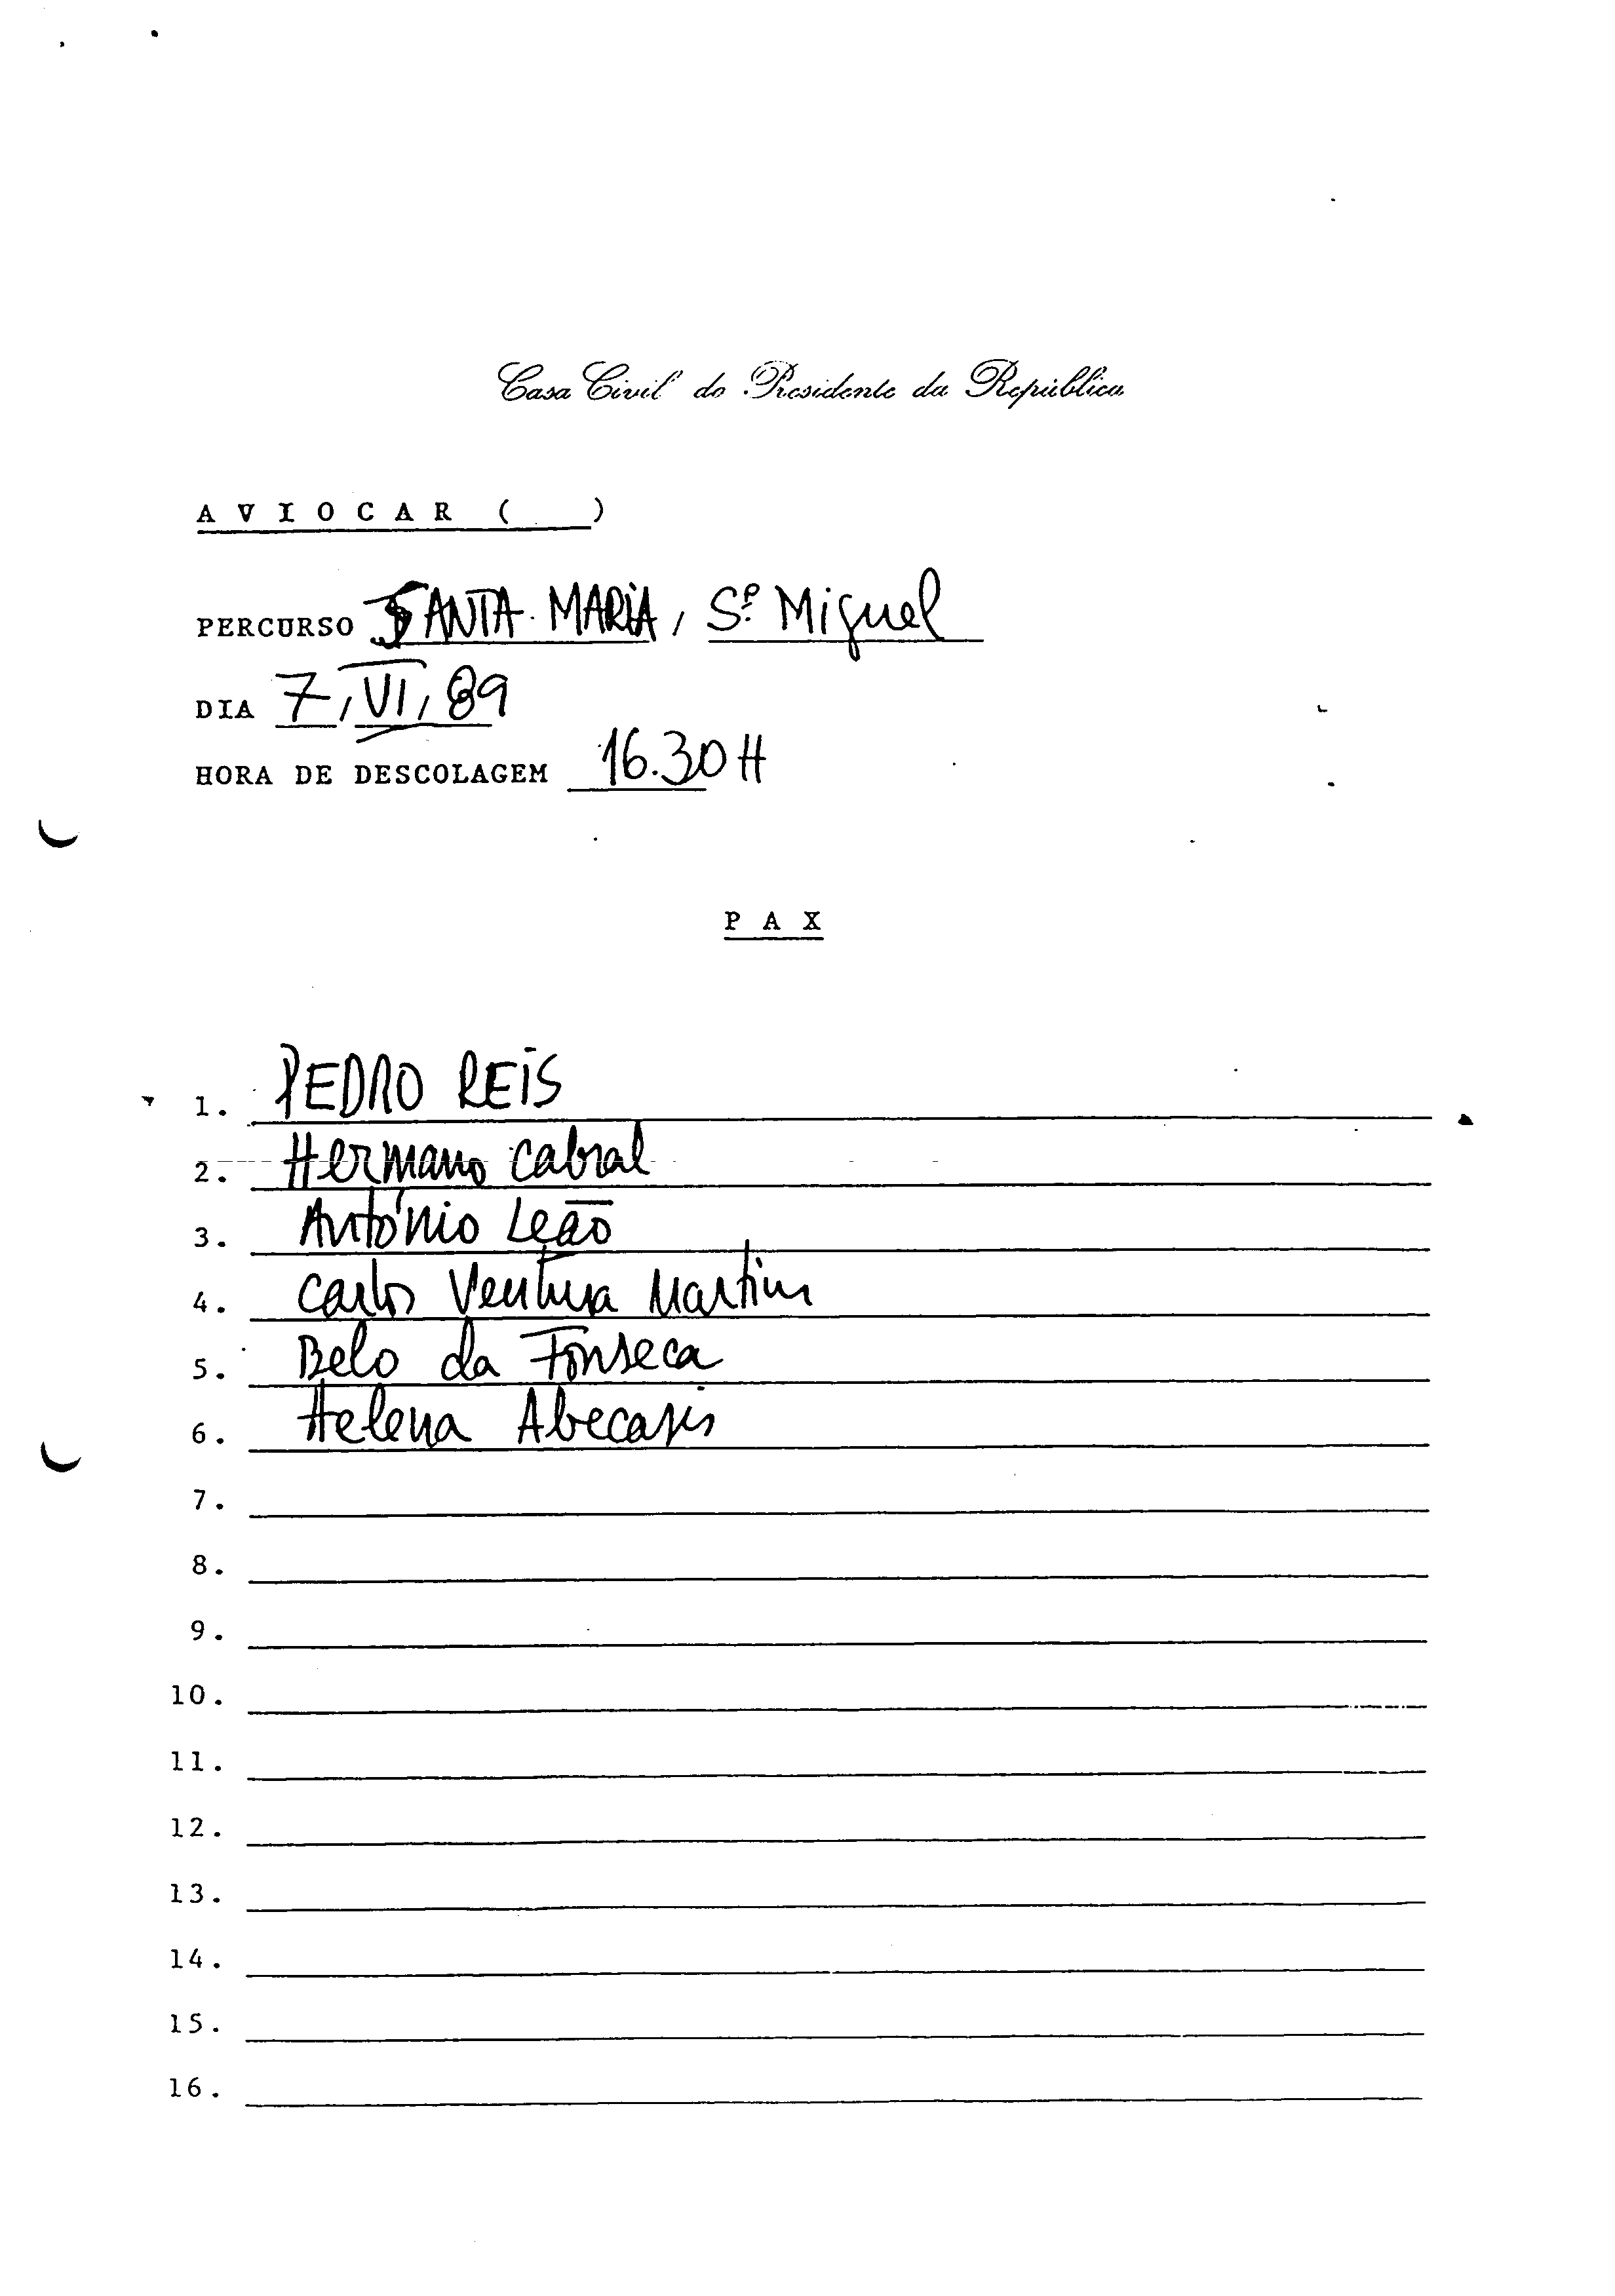 Casa Civil do Presidente da República
AVIOCAR (   )
PERCURSO SANTA MARIA, Sº Miguel
DIA 7/VI/89
HORA DE DESCOLAGEM 16.30H
PAX
1. PEDRO REIS
2. Hermano Cabral
3. António Leão
4. Carlos Ventura Martins
5. Belo da Fonseca
6. Helena Abecasis
7.
8.
9.
10.
11.
12.
13.
14.
15.
16.